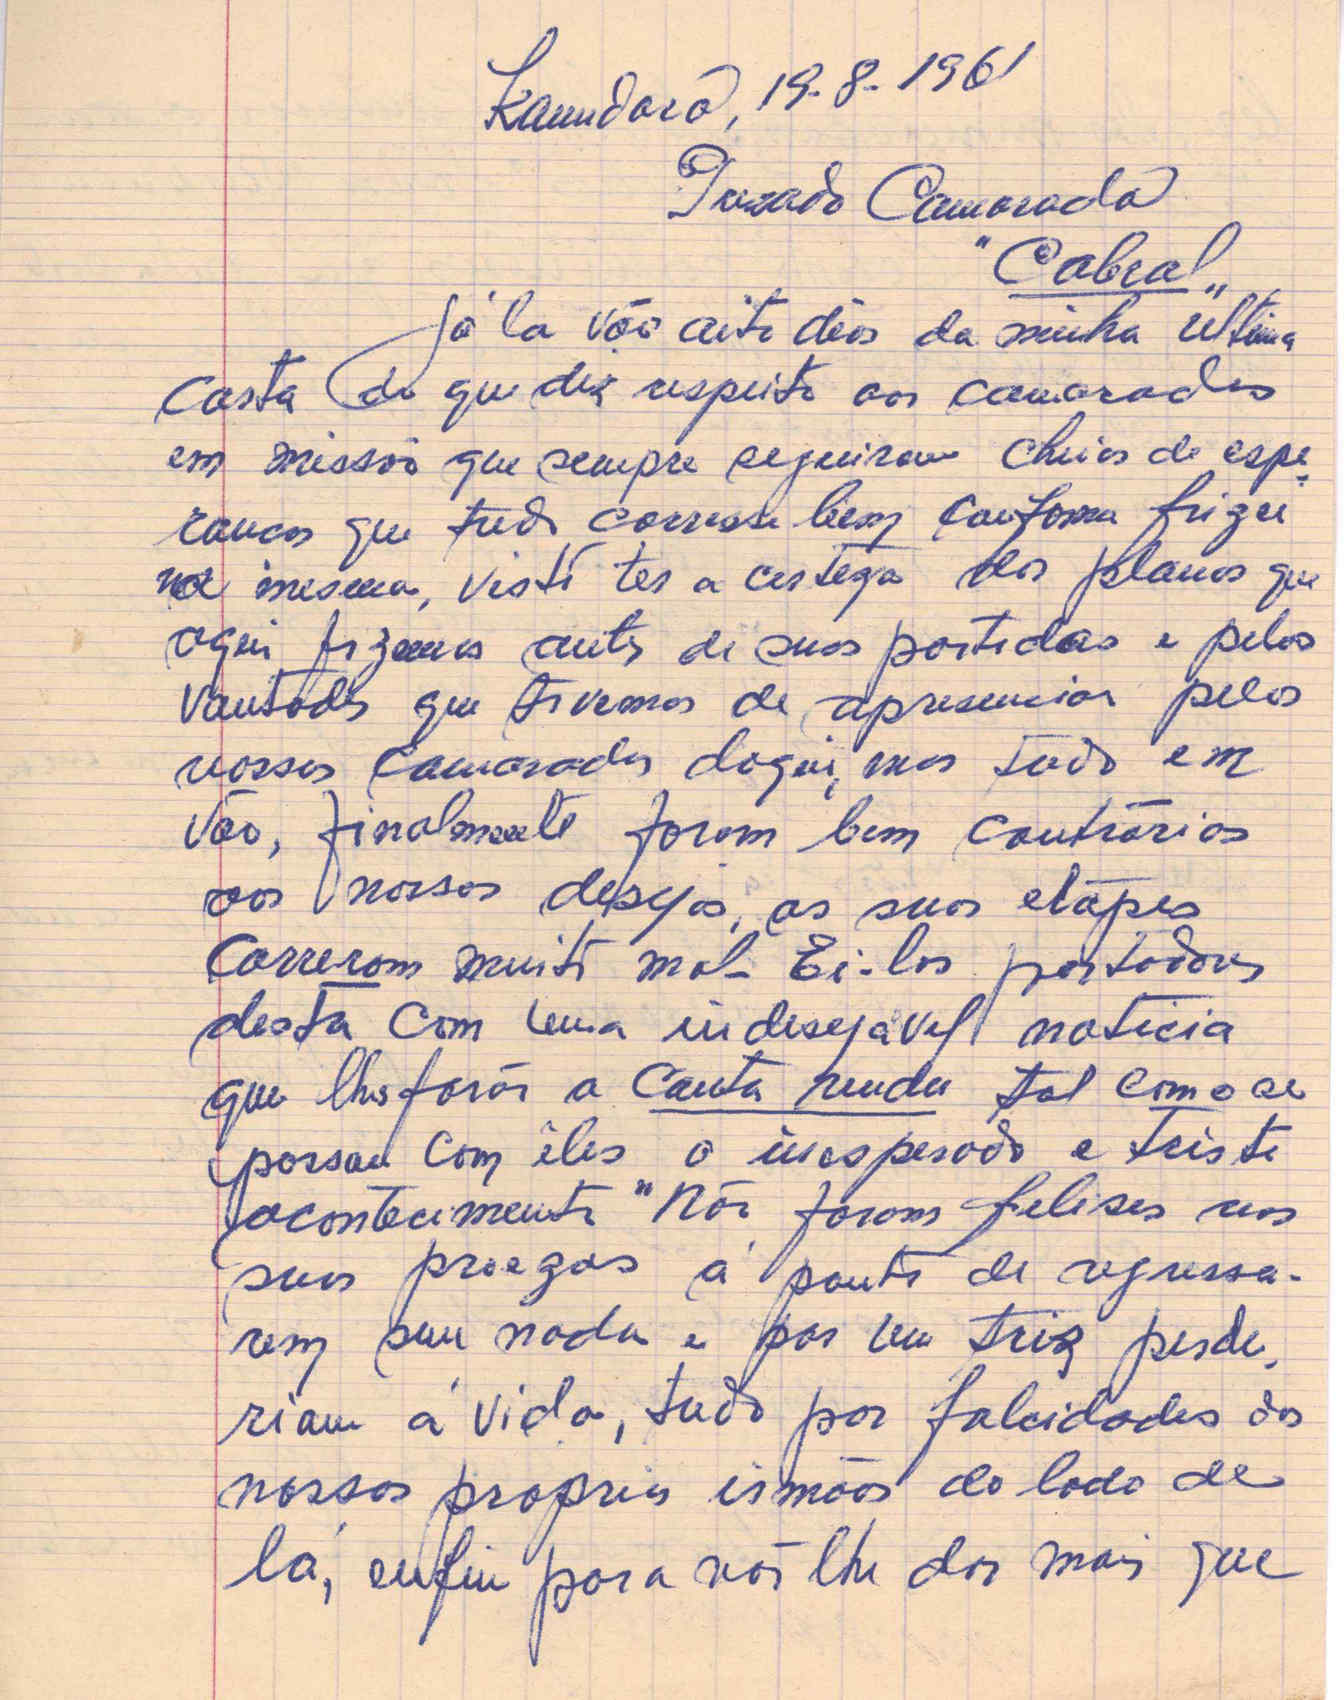 Koundara, 19-8-1961
Prezado Camarada
"Cabral"
Já la vão oito dias da minha ultima
carta do que diz respeito aos camaradas
em missão que sempre seguiram cheios de espe-
rancas que tudo corresse bem conforma frizei
na mesma, visto ter a certeza dos planos que
aqui fizemos antes de suas partidas e pelos
vontades que tivemos de apresenciar pelos
nossos camaradas daqui, mas tudo em
vão, finalmente foram bem contrários
aos nossos desejos, as suas etápes
correram muito mal- Ei-los portadores
desta com uma indesejavel noticia
que lhe farão a conta rendu tal como se
passou com êles o inesperado e triste
acontecimento "Não foram felises nas
suas proezas á ponto de regressa-
rem sem nada e por um triz perde-
riam á vida, tudo por falcidades dos
nossos proprios irmãos do lado de
lá, enfim para nós lhe dar mais que